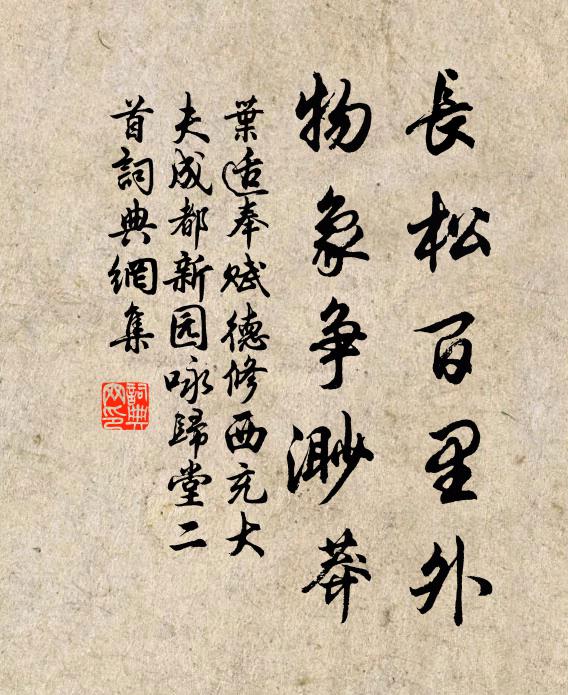 長松百里外
物象争渺莽
葉适奉賦德修西充大
夫成都新园咏歸堂二
首詞典網集
詞典
网印